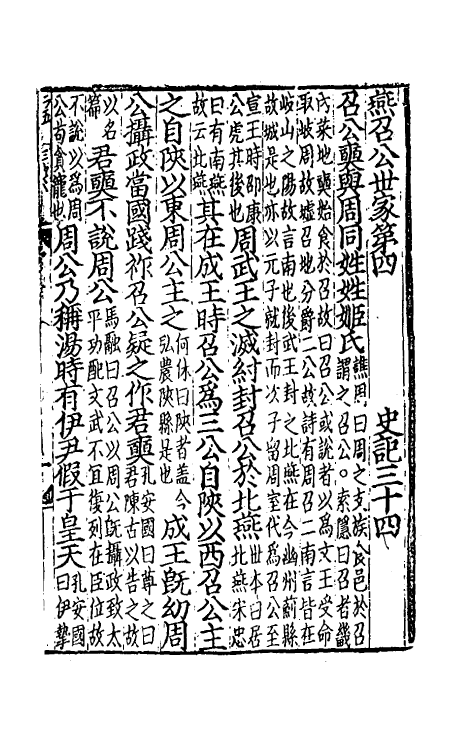 燕召公世家第四 史記三十四
召公奭與周同姓姓姬氏譙周曰周之支族食邑於召謂之召公。索隱曰召者畿
内菜地奭始食於召故曰召公或說者以為文王受命
取岐周故墟召地分爵二公故詩有周召二南言皆在
岐山之陽故言南也後武王封之北燕在今幽州薊縣
故城是也亦以元子就封而次子留周室代為召公至
宣王時邵康公虎其後也周武王之滅紂封召公於北燕世本曰居北燕宋忠
曰有南燕故云北燕其在成王時召公為三公自陝以西召公主
之自陝以東周公主之何休曰陝者蓋今弘農陝縣是也成王既幼周
公攝政當國踐祚召公疑之作君奭孔安國曰尊之曰君陳古以告之故
以名篇君奭不說周公馬融曰召公以周公既攝政致太平功配文武不宜復列在臣位故
不說以為周公苟貪寵也周公乃稱湯時有伊尹假于皇天孔安國曰伊摯